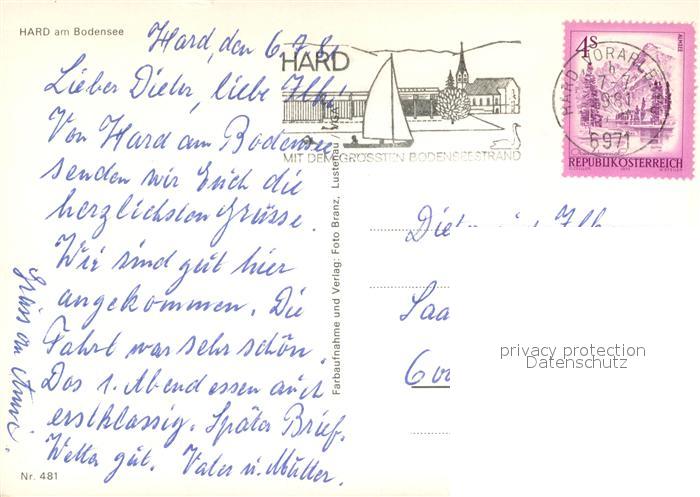 HARD am Bodensee
Hard, den 6.7.81
Lieber Dieter, liebe Ilka
Von Hard am Bodensee
senden wir Euch die
herzlichsten Grüsse.
Wir sind gut hier
angekommen. Die
Fahrt war sehr schön.
Das 1. Abendessen auch
erstklassig. Später Brief.
Wetter gut. Vater u. Mutter.
Gruss an Anne.
Nr. 481
Farbaufnahme und Verlag: Foto Branz, Lustenau / Vlbg.
HARD
MIT DEM GRÖSSTEN BODENSEESTRAND
HARD VORARLB
1981
6971
4S
ALMSEE
REPUBLIK ÖSTERREICH
Dieter
Saa
600
privacy protection
Datenschutz